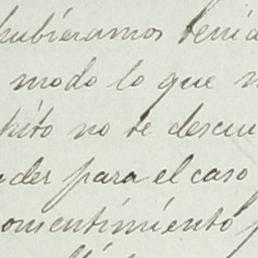 hubieramos tenid
modo lo que n
hito no te descui
der para el caso
omentimiento p